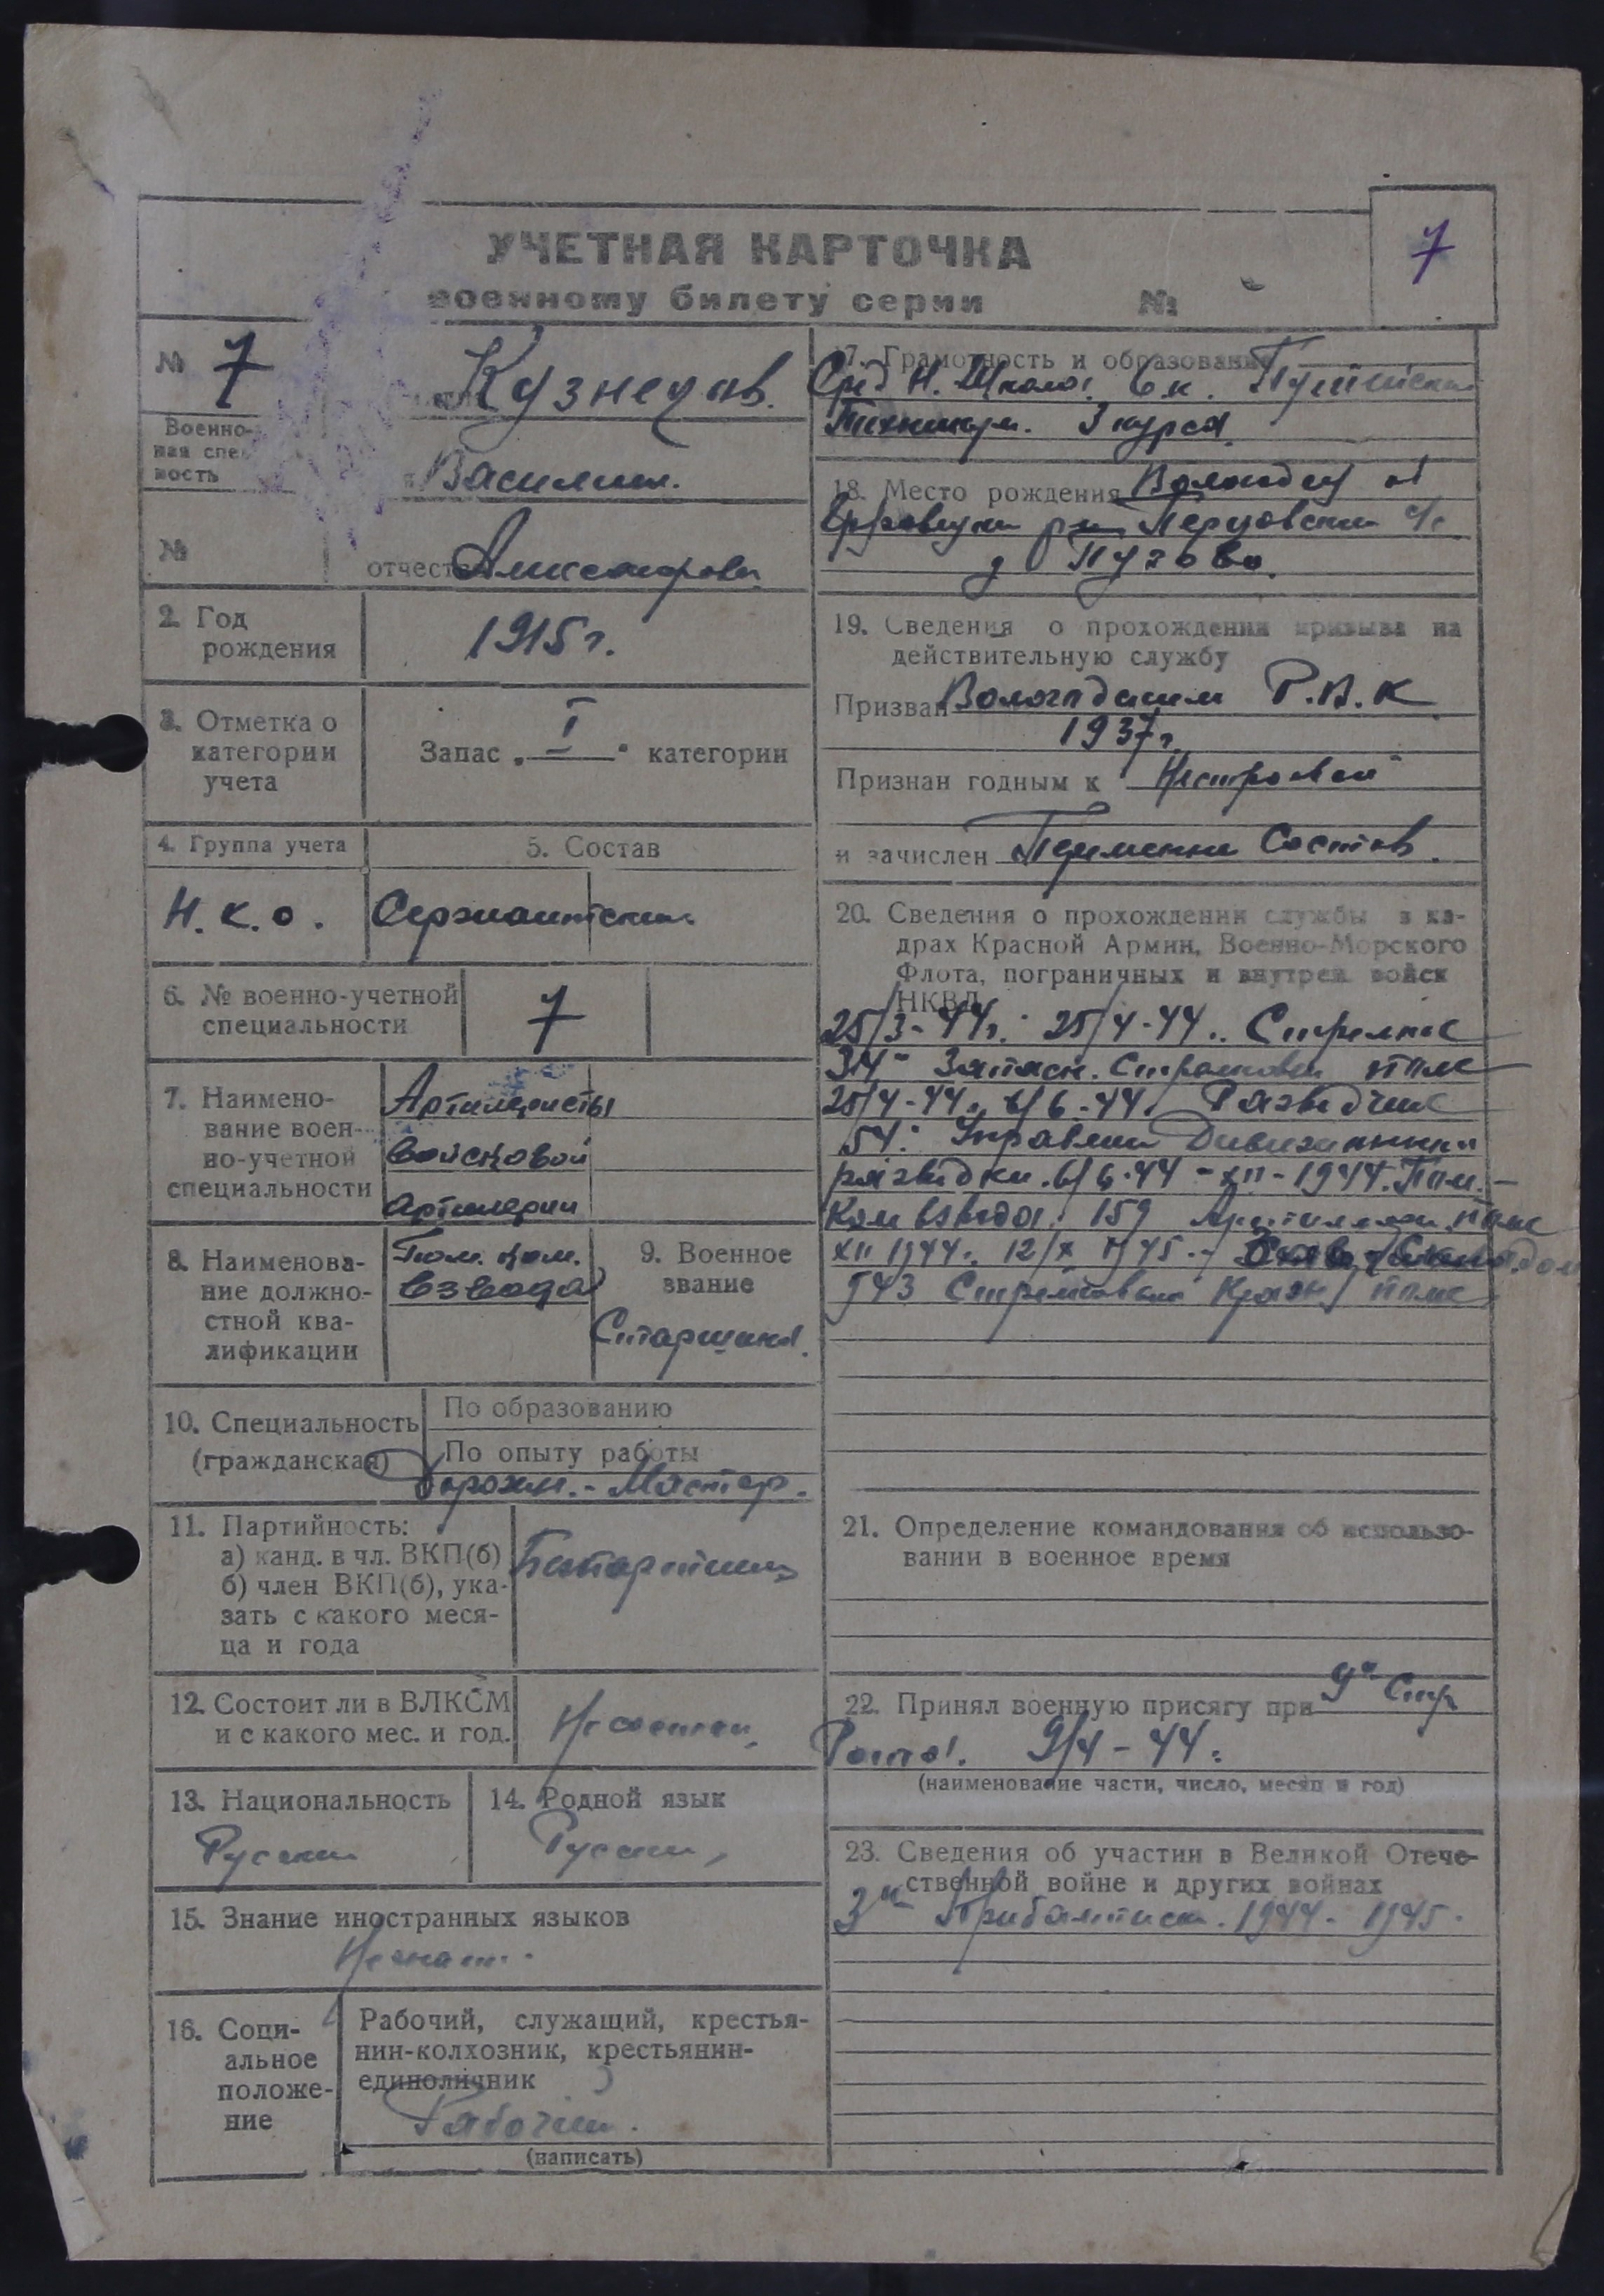 7
УЧЕТНАЯ КАРТОЧКА
военному билету серии №
№ 7
Кузнецов.
Военно-
ная спе
ность
Василий.
№
отчест Александрови
2. Год
рождения
1915 г.
3. Отметка о
категории
учета
Запас „I“ категории
4. Группа учета
5. Состав
Н.К.О.
Сержантский
6. № военно-учетной
специальности
7
7. Наимено-
вание воен-
но-учетной
специальности
Артилеристы
войсковой
артилерии
8. Наименова-
ние должно-
стной ква-
лификации
Пом. ком.
взвода
9. Военное
звание
Старшина.
10. Специальность
(гражданская)
По образованию
По опыту работы
Дорожн. - Мастер.
11. Партийность:
а) канд. в чл. ВКП(б)
б) член ВКП(б), ука-
зать с какого меся-
ца и года
12. Состоит ли в ВЛКСМ
и с какого мес. и год.
Не состоял
13. Национальность
Русский
14. Родной язык
Русский
15. Знание иностранных языков
Не знает.
16. Соци-
альное
положе-
ние
Рабочий, служащий, крестья-
нин-колхозник, крестьянин-
единоличник
Рабочий.
(написать)
17. Грамотность и образование
Сред. Н. Школа. 6 к.
Техникум. 3 курса.
18. Место рождения Вологодск об
с/с
д
19. Сведения о прохождении призыва на
действительную службу
Призван Вологодским Р.В.К
1937 г.
Признан годным к Нестроевой
и зачислен Переменн Состав.
20. Сведения о прохождении службы в ка-
драх Красной Армии, Военно-Морского
Флота, пограничных и внутрен войск
НКВД
25/3-44г. 25/4-44. Стрелок
314 Запасн. Стрелковы полк
25/4-44. 6/6-44. Разведчик
54. Управлен Дивизионная
разведки. 6/6-44 - XII-1944. Пом.
Ком взвода. 159 Артиллери полк
XII 1944. 12/X 1945.
543 Стрелковый полк
21. Определение командования об использо-
вании в военное время
22. Принял военную присягу при 9я Стр
Рота. 9/4-44.
(наименование части, число, месяц и год)
23. Сведения об участии в Великой Отече-
ственной войне и других войнах
3й Прибалтийск. 1944 - 1945.